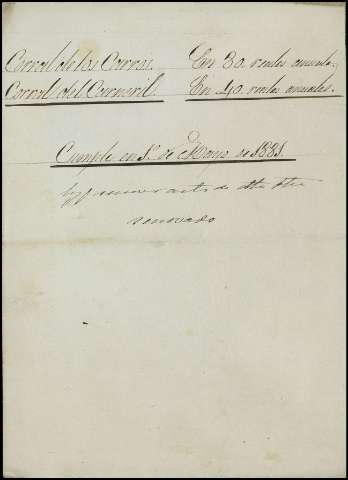 Corral de los Carros. En 30 reales anuales.
Corral del Carneril. En 40 reales anuales.
Cumple en 1º de Mayo de 1881.
renovado